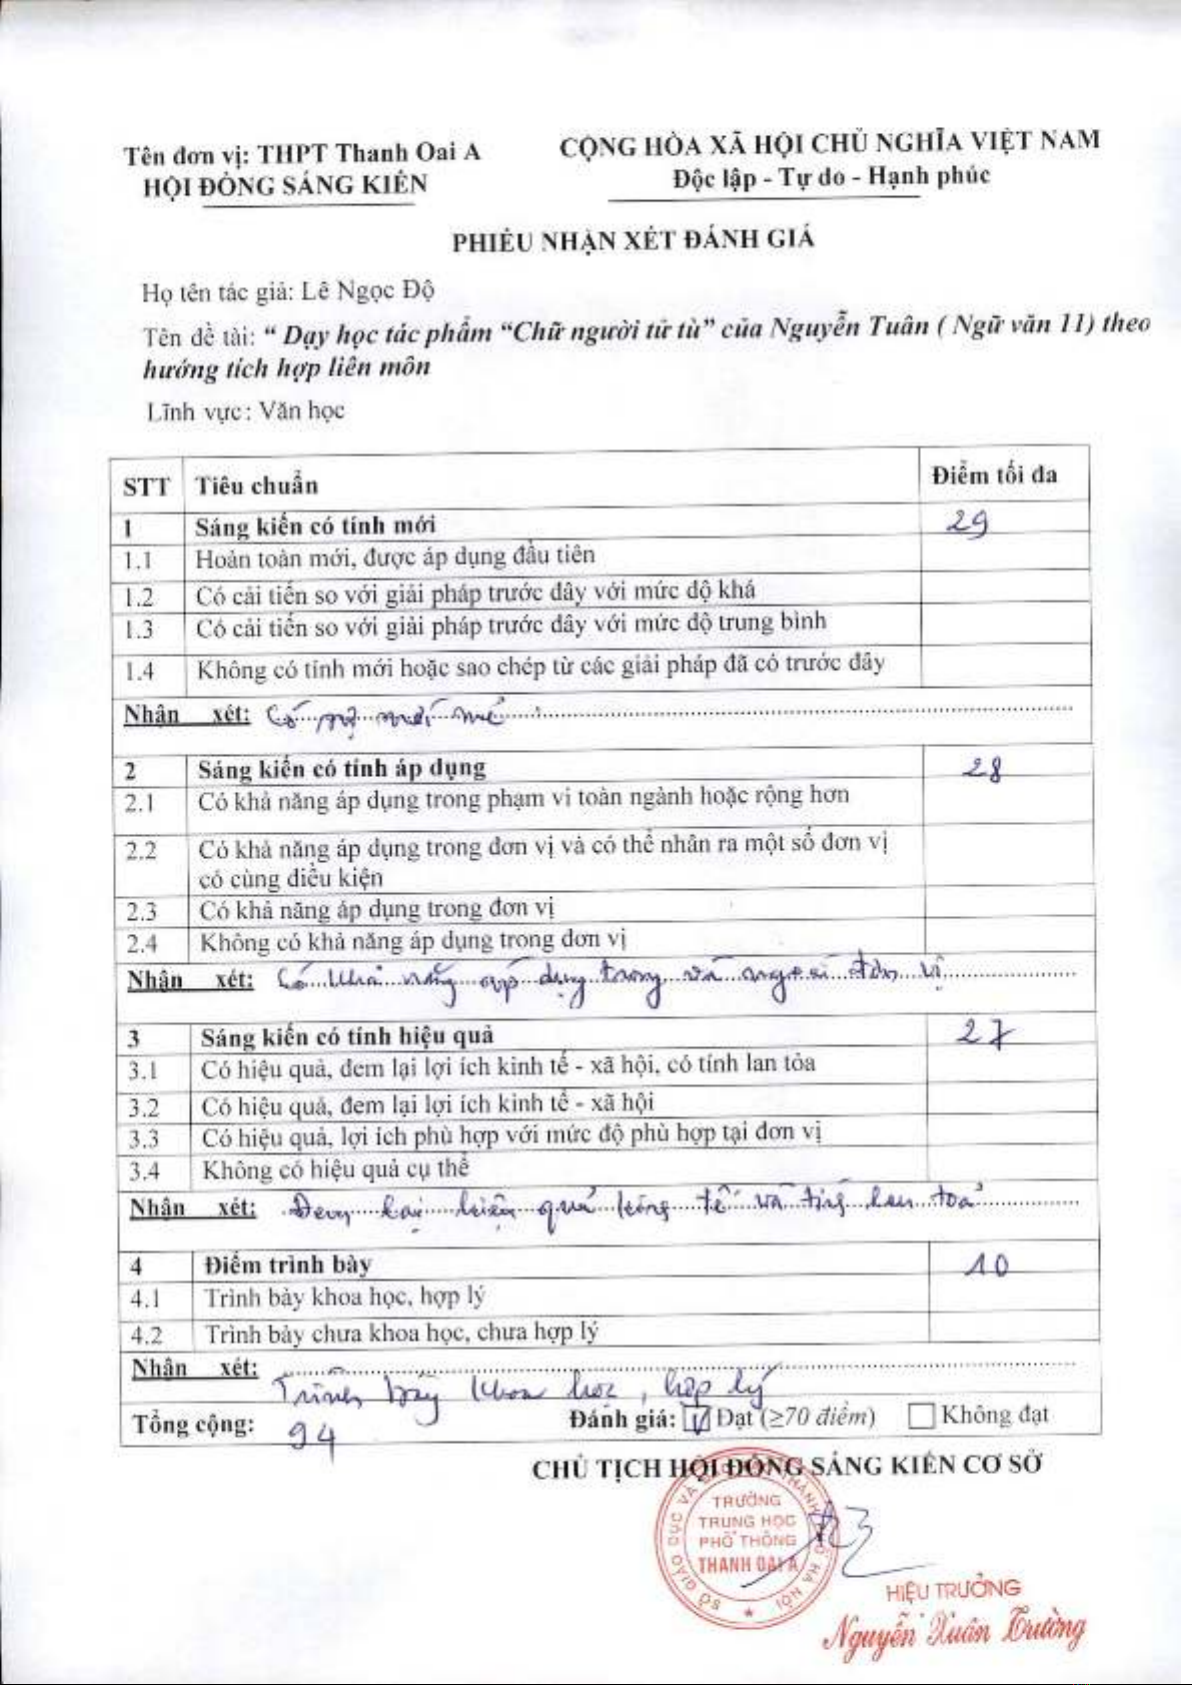 Tên đơn vị: THPT Thanh Oai A
HỘI ĐỒNG SÁNG KIẾN
CỘNG HÒA XÃ HỘI CHỦ NGHĨA VIỆT NAM
Độc lập - Tự do - Hạnh phúc
PHIẾU NHẬN XÉT ĐÁNH GIÁ
Họ tên tác giả: Lê Ngọc Độ
Tên đề tài: “ Dạy học tác phẩm “Chữ người tử tù” của Nguyễn Tuân ( Ngữ văn 11) theo
hướng tích hợp liên môn
Lĩnh vực: Văn học
STT Tiêu chuẩn Điểm tối đa
1 Sáng kiến có tính mới 29
1.1 Hoàn toàn mới, được áp dụng đầu tiên
1.2 Có cải tiến so với giải pháp trước đây với mức độ khá
1.3 Có cải tiến so với giải pháp trước đây với mức độ trung bình
1.4 Không có tính mới hoặc sao chép từ các giải pháp đã có trước đây
Nhận xét: Có sự mới mẻ
2 Sáng kiến có tính áp dụng 28
2.1 Có khả năng áp dụng trong phạm vi toàn ngành hoặc rộng hơn
2.2 Có khả năng áp dụng trong đơn vị và có thể nhân ra một số đơn vị
có cùng điều kiện
2.3 Có khả năng áp dụng trong đơn vị
2.4 Không có khả năng áp dụng trong đơn vị
Nhận xét: Có khả năng áp dụng trong và ngoài đơn vị
3 Sáng kiến có tính hiệu quả 27
3.1 Có hiệu quả, đem lại lợi ích kinh tế - xã hội, có tính lan tỏa
3.2 Có hiệu quả, đem lại lợi ích kinh tế - xã hội
3.3 Có hiệu quả, lợi ích phù hợp với mức độ phù hợp tại đơn vị
3.4 Không có hiệu quả cụ thể
Nhận xét: Đem lại hiệu quả kinh tế và tính lan toả
4 Điểm trình bày 10
4.1 Trình bày khoa học, hợp lý
4.2 Trình bày chưa khoa học, chưa hợp lý
Nhận xét:
Trình bày khoa học, hợp lý
Tổng cộng: 94 Đánh giá: Đạt (≥70 điểm) Không đạt
CHỦ TỊCH HỘI ĐỒNG SÁNG KIẾN CƠ SỞ
TRƯỜNG
TRUNG HỌC
PHỔ THÔNG
THANH OAI A
HIỆU TRƯỞNG
Nguyễn Xuân Trường